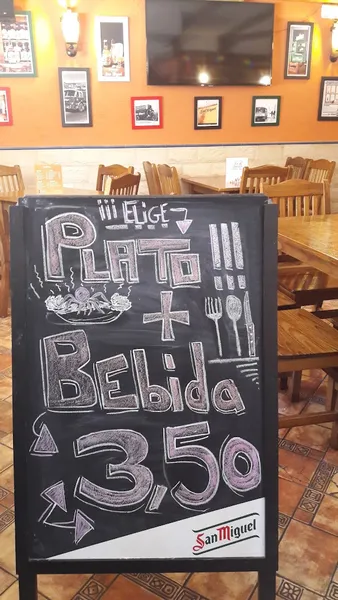 ¡¡¡ ELiGE
PLATO
+
BEbida
3,50
San Miguel